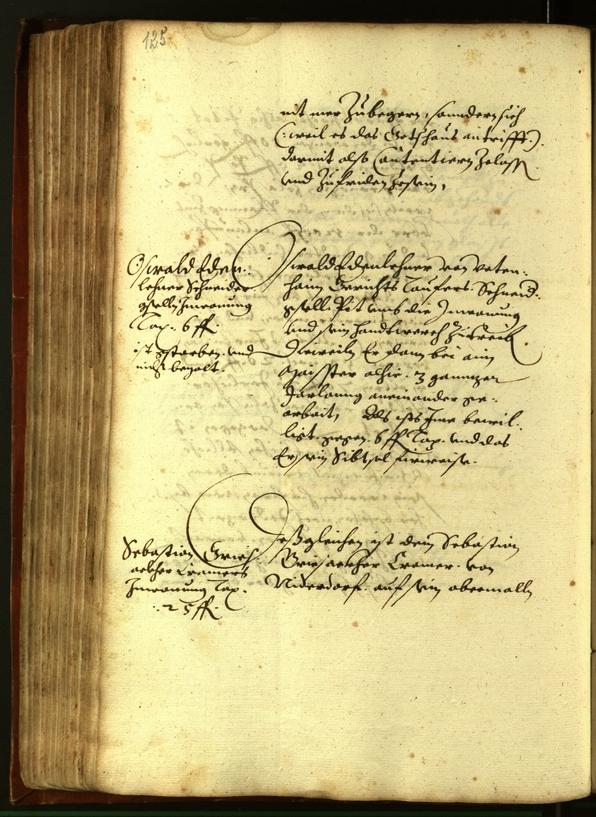 125
nit mer Zubegern, sonndern sich
(: weil es das Gotshaus antrifft :)
darmit also Zelassn
und Zufriden Zesein,
Oswald Eden-
lehner Schneider
gselln Inwonung
Tax: 6 ff
ist gstorben und
nichts bezalt.
Oswald Edenlehner von Uten-
haim Gerichts Taufers Schneid-
gselln Pit umb die Inwonung
und sein handtwerch Zutreib.
Dieweiln Er dann bei aim
Maister alhie 3 gannzer
Jarlanng aneinander ge-
arbait, Als ists Ime bewil-
ligt gegen 6 ff Tax und das
Er sein furweise.
Sebastian Gries-
acher Cramers
Inwonung Tax
: 25 ff.
Desgleichen ist dem Sebastian
Griesacher Cramer von
Niderdorf auf sein abermalln